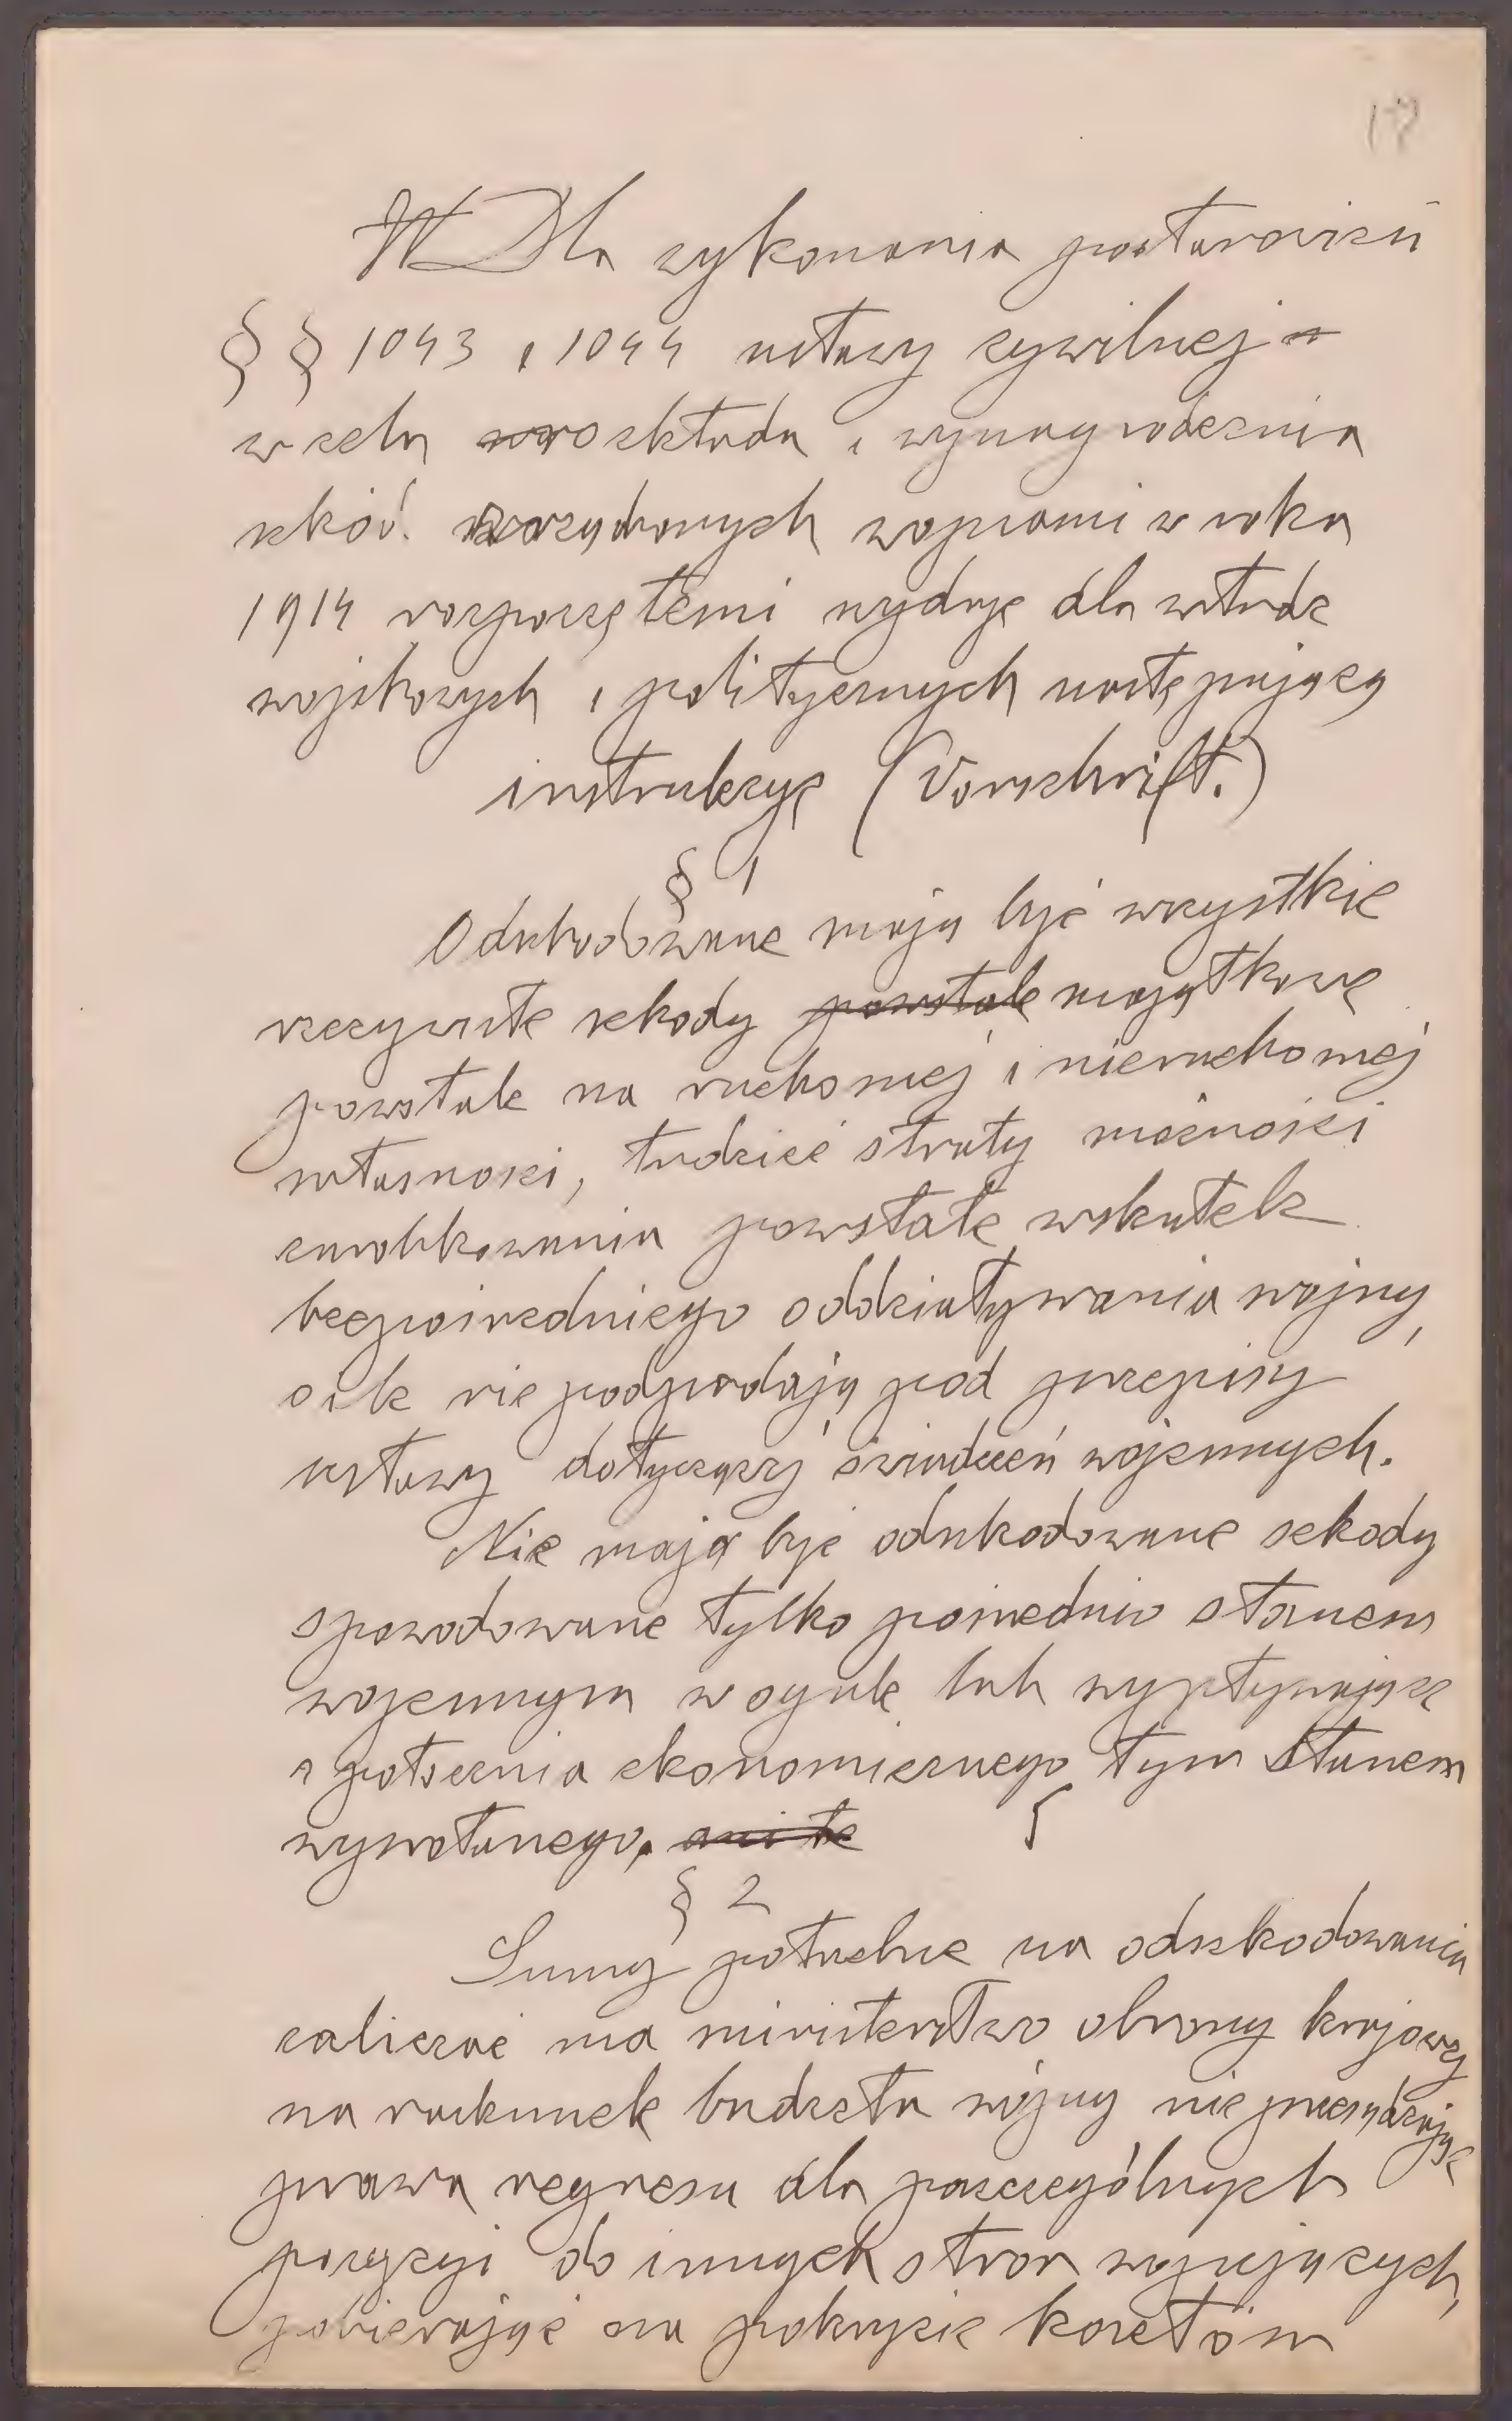 17
W Dla wykonania postanowień
§ § 1043 i 1044 ustawy cywilnej
w celu rozkładu i wynagrodzenia
szkód wojnami w roku
1914 rozpoczętemi wydaję dla władz
wojskowych i politycznych następującą
instrukcyę (Vorschrift.)
§ 1
Odszkodowane mają być wszystkie
rzeczywiste szkody powstałe majątkowe
powstałe na ruchomej i nieruchomej
własności, tudzież straty możności
zarobkowania powstałe wskutek
bezpośredniego oddziaływania wojny,
o ile nie podpadają pod przepisy
ustawy dotyczącej świadczeń wojennych.
Nie mają być odszkodowane szkody
spowodowane tylko pośrednio stanem
wojennym w ogóle lub wypływające
z położenia ekonomicznego tym stanem
wywołanego. ani te
§ 2
Sumy potrzebne na odszkodowania
zaliczać ma ministerstwo obrony krajowej
na rachunek budżetu wojny nie przesądzając
prawa regresu dla poszczególnych
pozycyi do innych stron wojujących,
pobierając na pokrycie kosztów